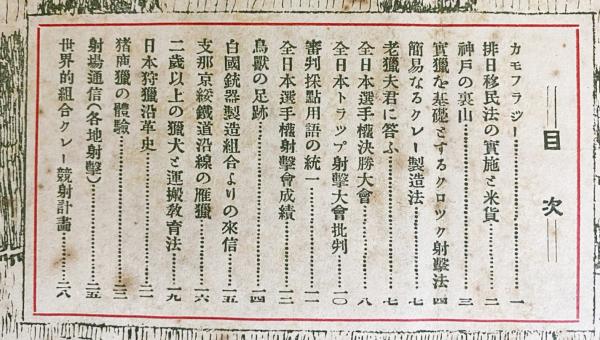 目次
カモフラジー……一
排日移民法の實施と米貨……二
神戸の裏山……三
實獵を基礎とするクロツク射擊法……四
簡易なるクレー製造法……七
老獵夫君に答ふ……七
全日本選手權決勝大會……八
全日本トラップ射擊大會批判……一〇
審判採點用語の統一……一一
全日本選手權射擊會成績……一二
鳥獸の足跡……一四
白國銃器製造組合よりの來信……一五
支那京綏鐵道沿線の雁獵……一六
二歲以上の獵犬と運搬敎育法……一九
日本狩獵沿革史……二一
猪鹿獵の體驗……二三
射場通信(各地射擊)……二五
世界的組合クレー競射計畫……二八